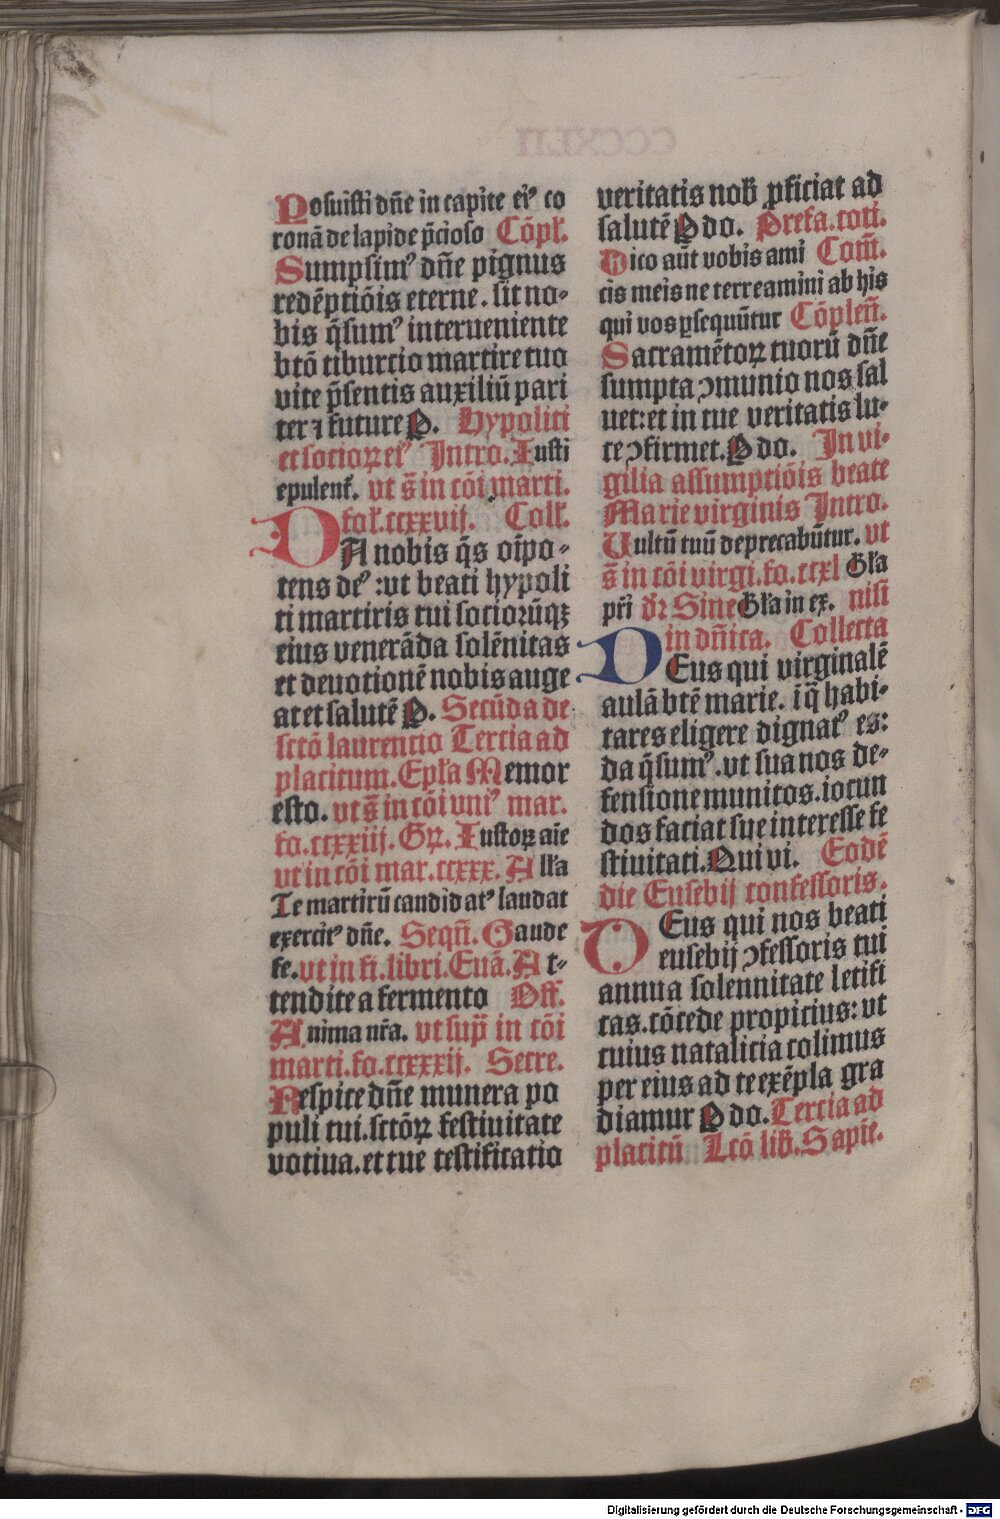 Posuisti dñe in capite eiꝰ co
ronā de lapide p̄cioso Cōpl̄.
Sumpsimꝰ dñe pignus
redēptiōis eterne. sit no-
bis q̄sumꝰ interueniente
btō tiburcio martire tuo
vite p̄sentis auxiliū pari
ter ⁊ future P. Hypoliti
et socioꝝ eiꝰ Intro. Iusti
epulent̄. vt s̄ in cōi marti.
fol̄. ccxxvij. Coll̄.
DA nobis q̄s oīpo-
tens deꝰ :vt beati hypoli
ti martiris tui socioꝝūqꝫ
eius venerāda solēnitas
et deuotionē nobis auge
at et salutē P. Secūda de
sctō laurentio Tercia ad
placitum. Epl̄a Memor
esto. vt s̄ in cōi vniꝰ mar.
fo. ccxxiij. Gꝝ. Iustoꝝ aīe
vt in cōi mar. ccxxx. All̄a
Te martirū candidatꝰ laudat
exercitꝰ dñe. Seqñ. Gaude
fe. vt in fi. libri. Euā. At-
tendite a fermento Off.
Anima nr̄a. vt sup̄ in cōi
marti. fo. ccxxxij. Secre.
Respice dñe munera po
puli tui. sctōꝝ festiuitate
votiua. et tue testificatio
veritatis nob̄ ꝓficiat ad
salutē P do. Prefa. coti.
Dico aūt vobis ami Com̄.
cis meis ne terreamini ab his
qui vos ꝑsequūtur Cōpleñ.
Sacramētoꝝ tuorū dñe
sumpta ꝯmunio nos sal
uet: et in tue veritatis lu-
ce ꝯfirmet. P do. In vi-
gilia assumptiōis beate
Marie virginis Intro.
Vultū tuū deprecabūtur. vt
s̄ in cōi virgi. fo. ccxl Gl̄a
pr̄i dr̄ Sine Gl̄a in ex. nisi
in dñica. Collecta
DEus qui virginalē
aulā btē marie. ī q̄ habi-
tares eligere dignatꝰ es:
da q̄sumꝰ. vt sua nos de-
fensione munitos. iocun
dos faciat sue interesse fe
stiuitati. Qui vi. Eodē
die Eusebij confessoris.
DEus qui nos beati
eusebij ꝯfessoris tui
annua solennitate letifi
cas. cōcede propicius: vt
cuius natalicia colimus
per eius ad te exēpla gra
diamur P do. Tercia ad
placitū Lcō lib̄. Sapiē.
Digitalisierung gefördert durch die Deutsche Forschungsgemeinschaft - DFG